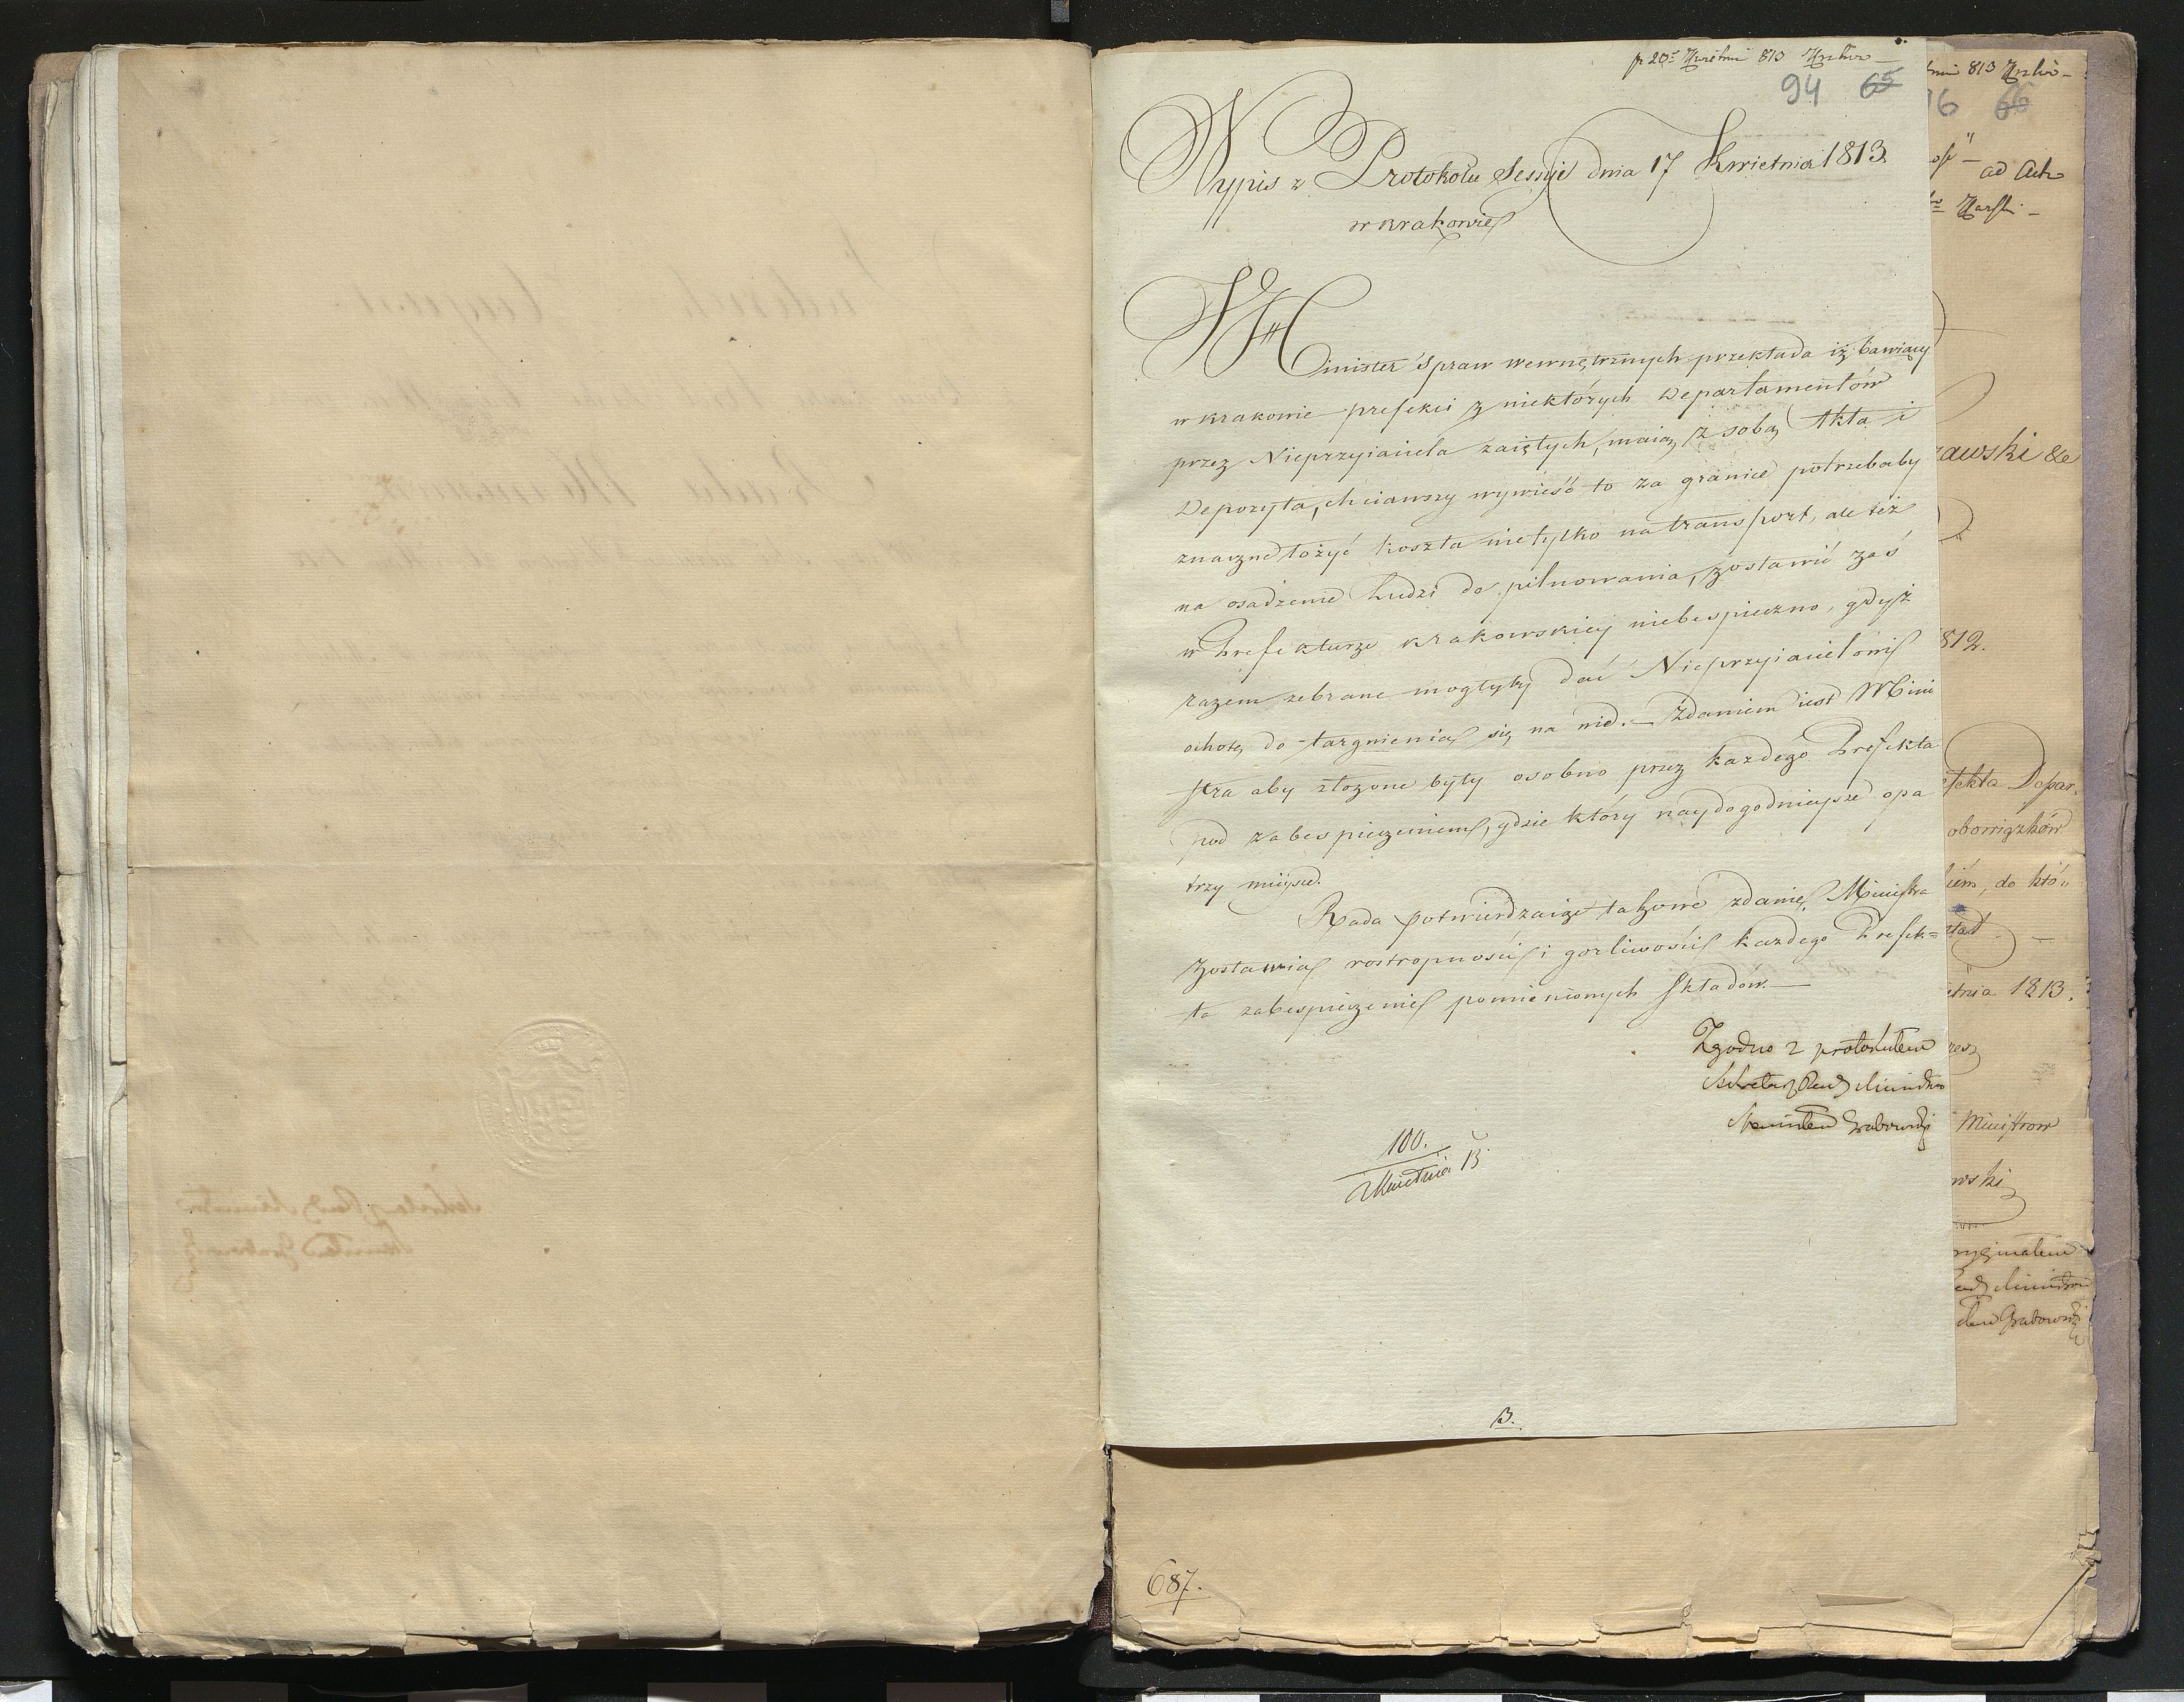 p 20 Kwietnia 813
94 65
Wypis z Protokołu Sessyi dnia 17 Kwietnia 1813.
w Krakowie
JW Minister Spraw wewnętrznych przekłada iż bawiący
w Krakowie prefekci z niektórych Departamentów
przez Nieprzyiaciela zaiętych, maią z sobą Akta i
Depozyta, chciawszy wywieść to za granice potrzebaby
znaczne łożyć koszta nietylko na transport, ale też
na osadzenie Ludzi do pilnowania, zostawić zaś
w Prefekturze Krakowskiey niebespieczno, gdyż
razem zebrane mogłyby dać Nieprzyiacielowi
ochotę do targnienia się na nie. — Zdaniem iest Mini
stra aby złożone były osobno przez każdego Prefekta
pod zabespieczeniem, gdzie który naydogodnieysze opa
trzy mieysce.
Rada potwierdzaiąc takowe zdanie Ministra
zostawia rostropności i gorliwości każdego Prefek=
ta zabespieczenie pomienionych składów. —
Zgodno z protokułem
Sekretarz Rady Ministrów
Stanisław Grabowski
100.
Kwietnia 13
B.
687.
813
16 66
ad Acta
zawski &c
1812.
fekta Depar„
obowiązków
iem, do któ„
etnia 1813.
Ministrow
wski
oryginałem
Rady Ministrow
Grabowski